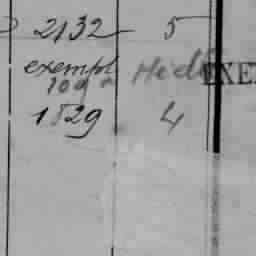 2132 5
exempl
109
1529 4
EXE